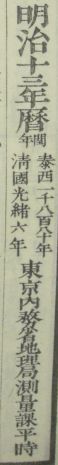 明治十三年暦
閏年
泰西一千八百八十年
清國光緒六年
東京内務省地理局測量課平時